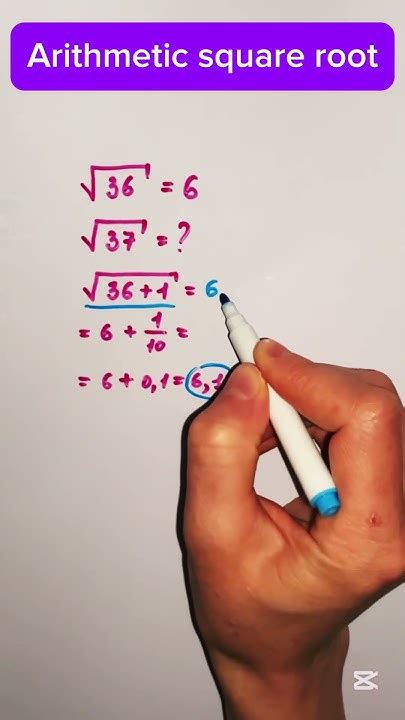 Arithmetic square root
√36 = 6
√37 = ?
√36+1 = 6
= 6 + 1/10 =
= 6 + 0,1 = 6,1